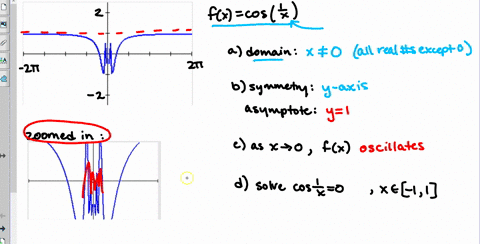 2
-2π
2π
-2
zoomed in:
f(x)=cos(1/x)
a) domain: x≠0 (all real #s except 0)
b) symmety: y-axis
asymptote: y=1
c) as x→0, f(x) oscillates
d) solve cos 1/x=0, x∈[-1,1]